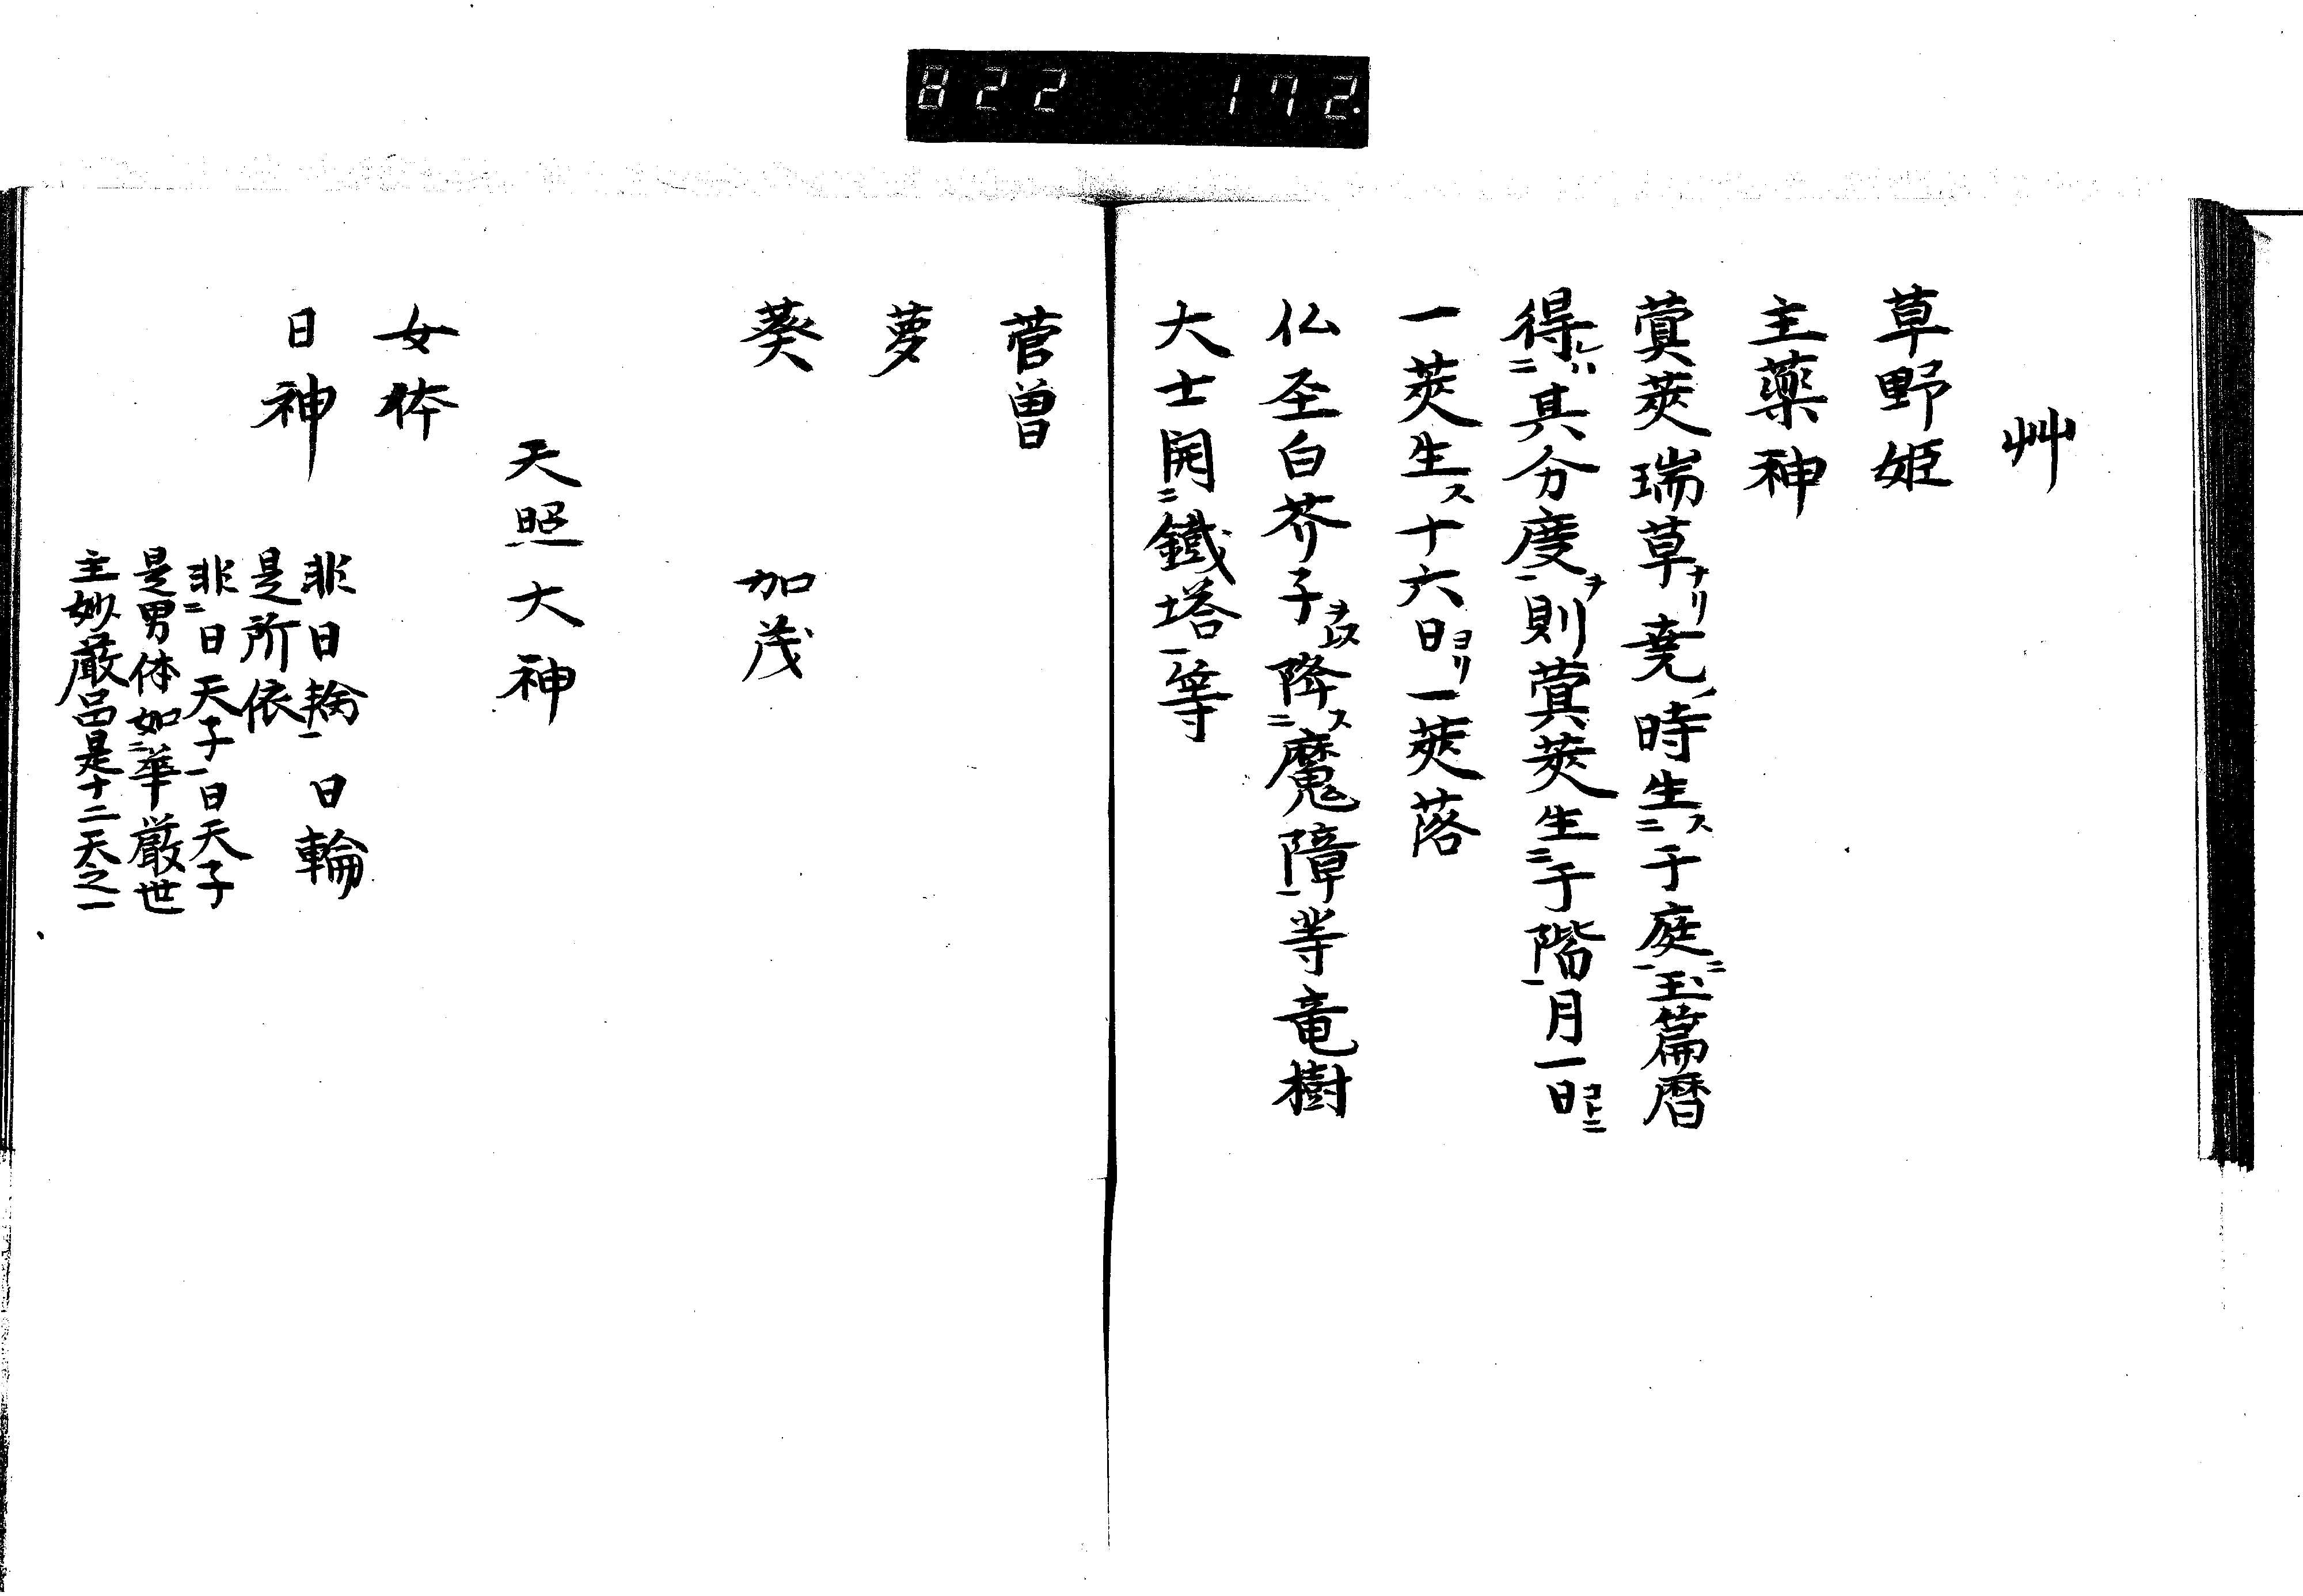 822 172.
艸
草野姫
主薬神
蓂莢瑞草ナリ堯ノ時生ス二于庭一ニ玉篇暦
得レハ二其分度一ヲ則蓂莢生二于階一月一日コトニ
一莢生ス十六日ヨリ一莢落
仏圣白芥子ヲ以降ス二魔障一等竜樹
大士開二鐵塔一等
菅曽
蘿
葵 加茂
天照大神
女体
日神 非日輪一日輪
是所依
非二日天子一日天子
是男体如二華厳世
主妙嚴品是十二天之一